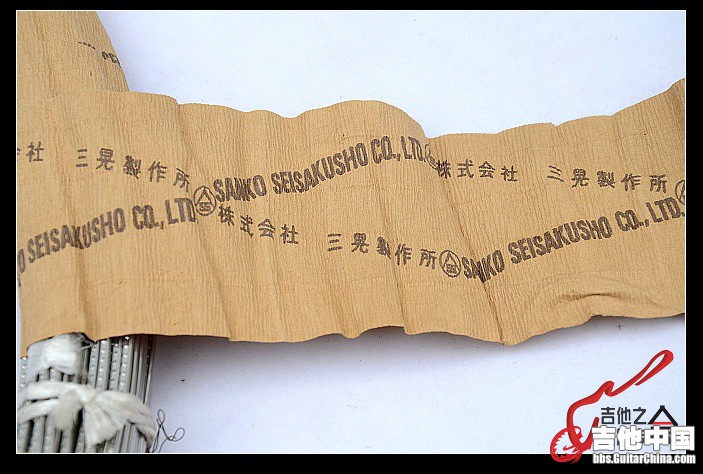 会社 三晃製作所 SS SANKO SEISAKUSHO CO., LTD. 株式会社 三晃製作所
SEISAKUSHO CO., LTD. SS 株式会社 三晃製作所 SS SANKO SEISAKUSHO CO., LTD.
吉他之
吉他中国
bbs.GuitarChina.com